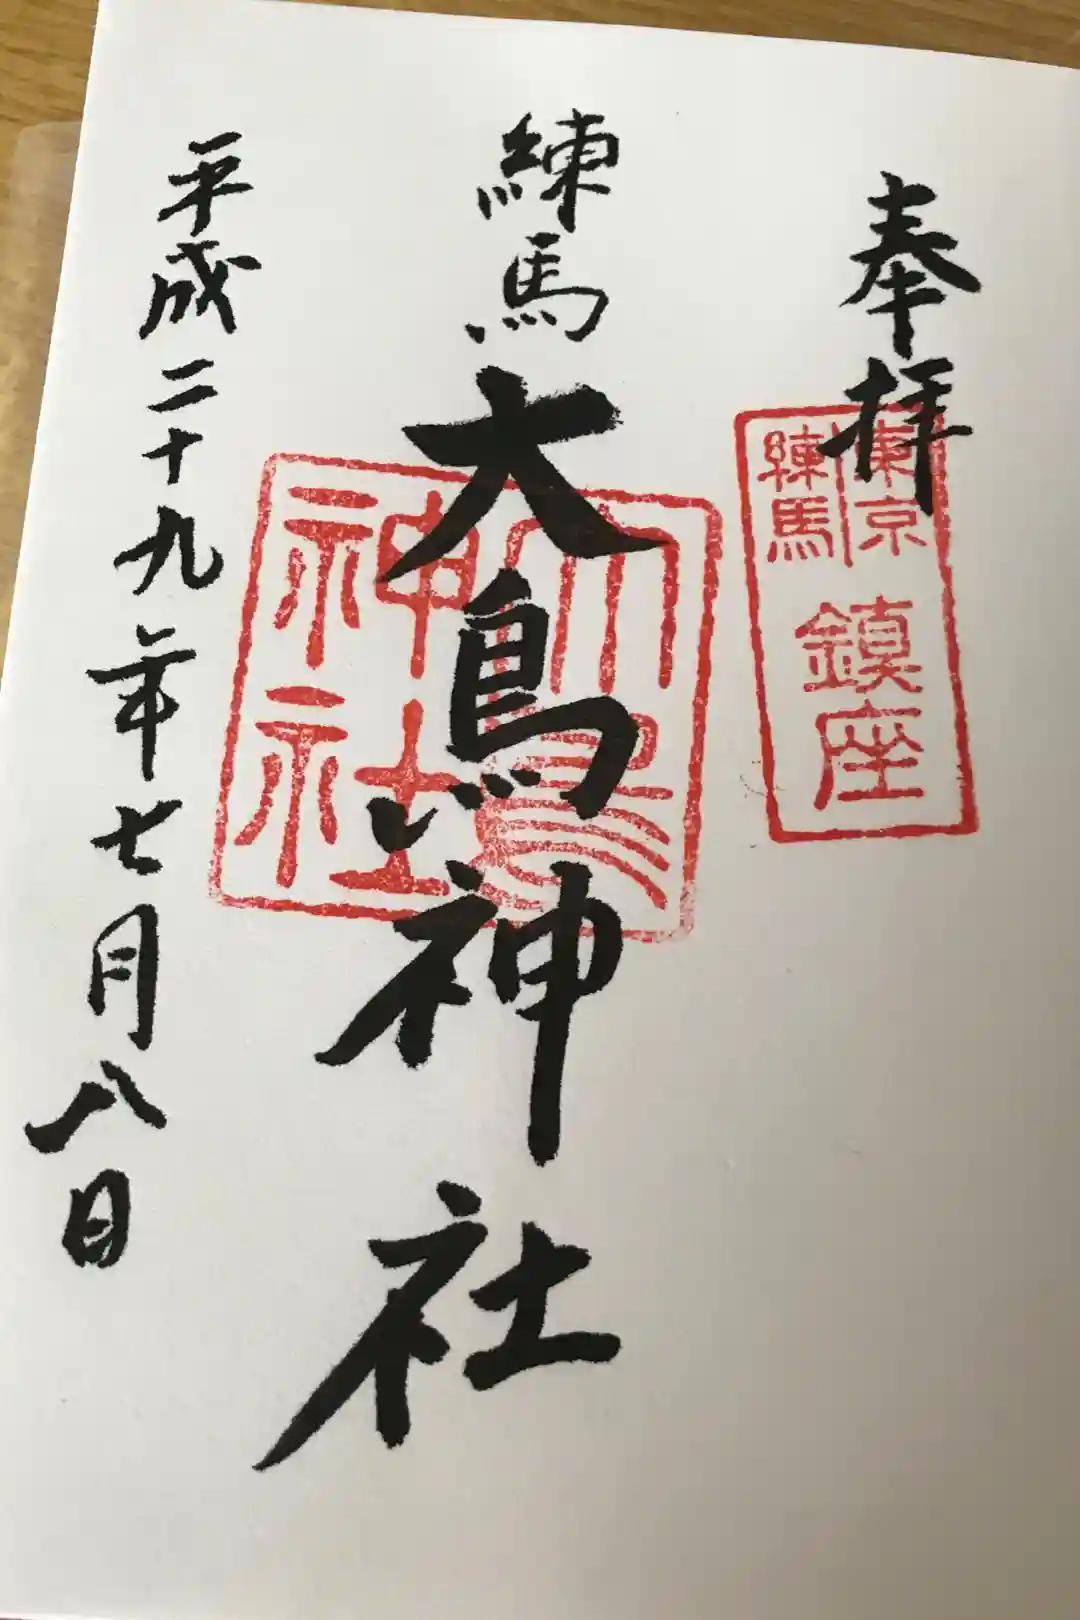 奉拝
東京
練馬
鎮座
練馬
大鳥神社
大鳥
神社
平成二十九年七月八日